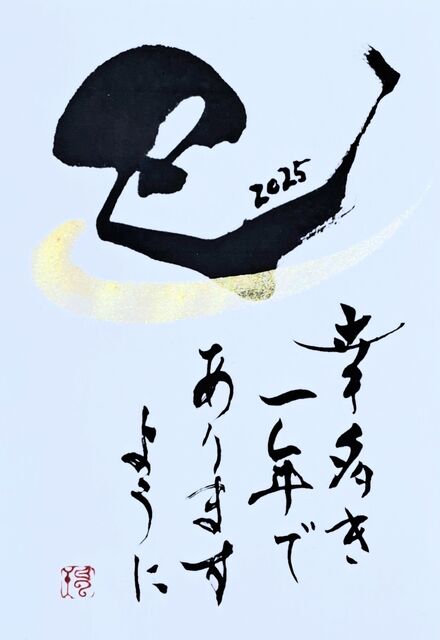 巳
2025
幸多き
一年で
あります
ように